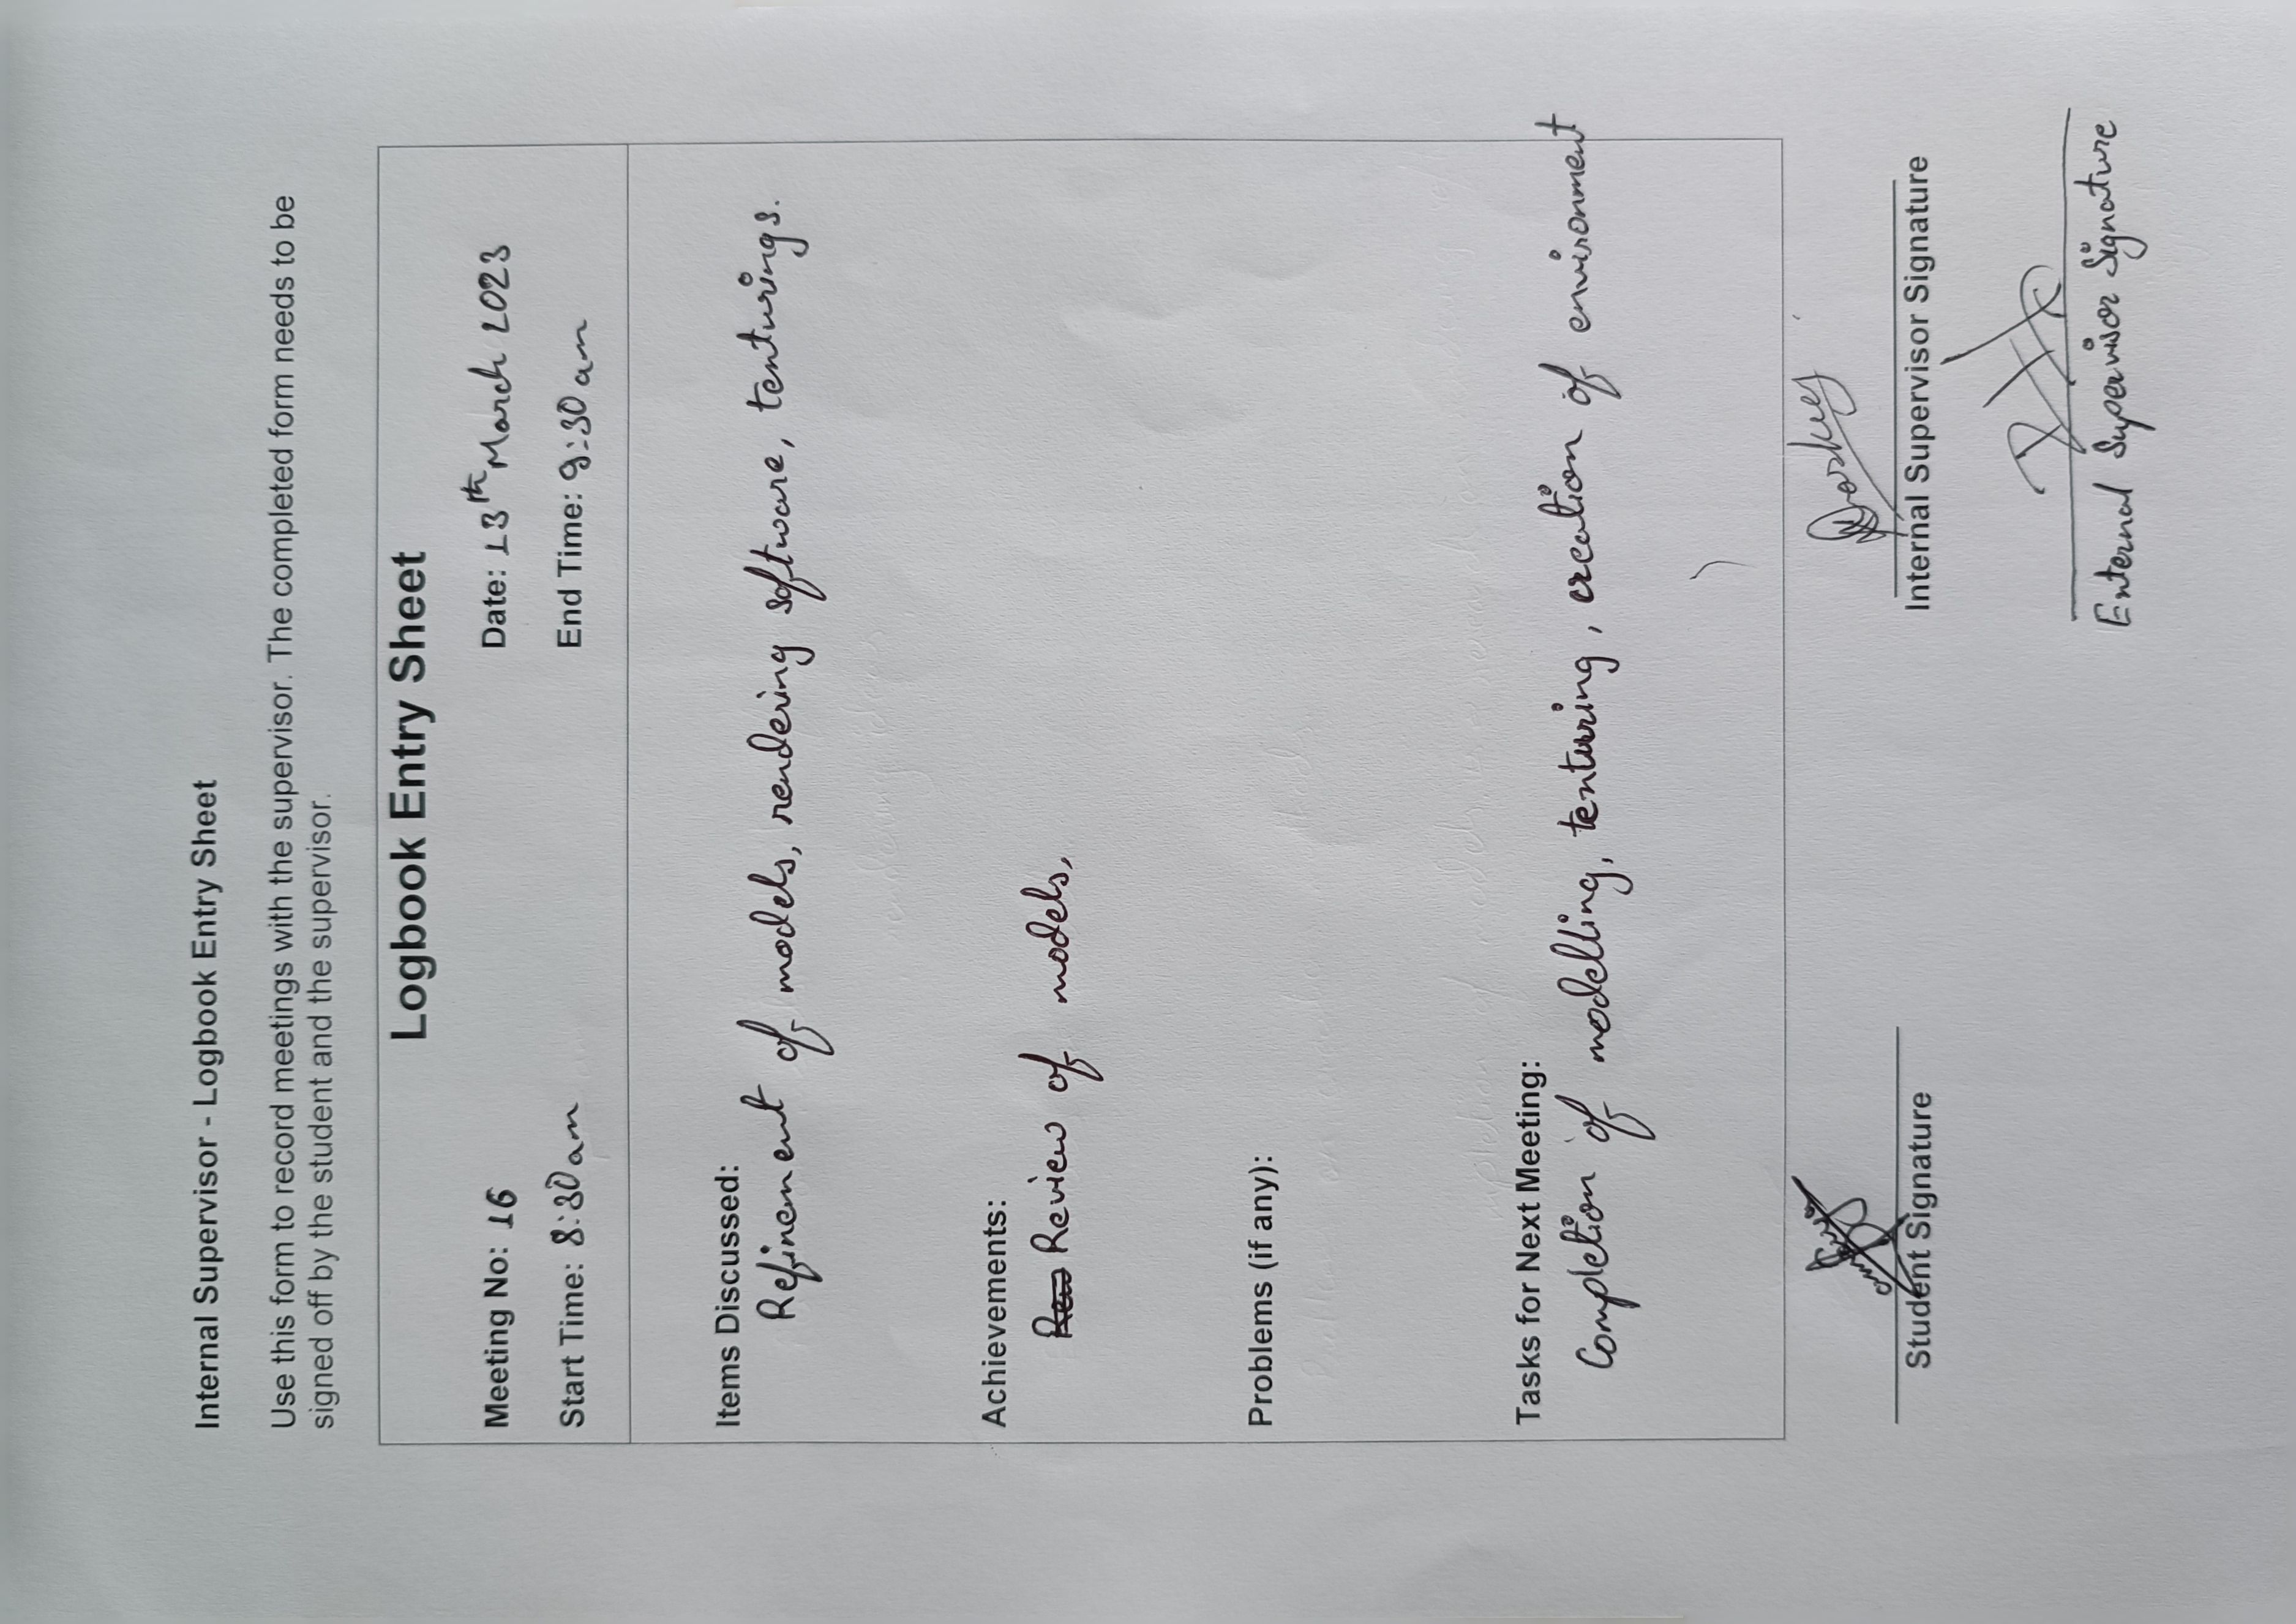 Internal Supervisor - Logbook Entry Sheet
Use this form to record meetings with the supervisor. The completed form needs to be
signed off by the student and the supervisor.
Logbook Entry Sheet
Meeting No: 16 Date: 13th March 2023
Start Time: 8:30 am End Time: 9:30 am
Items Discussed:
Refinement of models, rendering software, texturings.
Achievements:
Review of models,
Problems (if any):
Tasks for Next Meeting:
Completion of modelling, texturing, creation of environment
Student Signature Internal Supervisor Signature
External Supervisor Signature